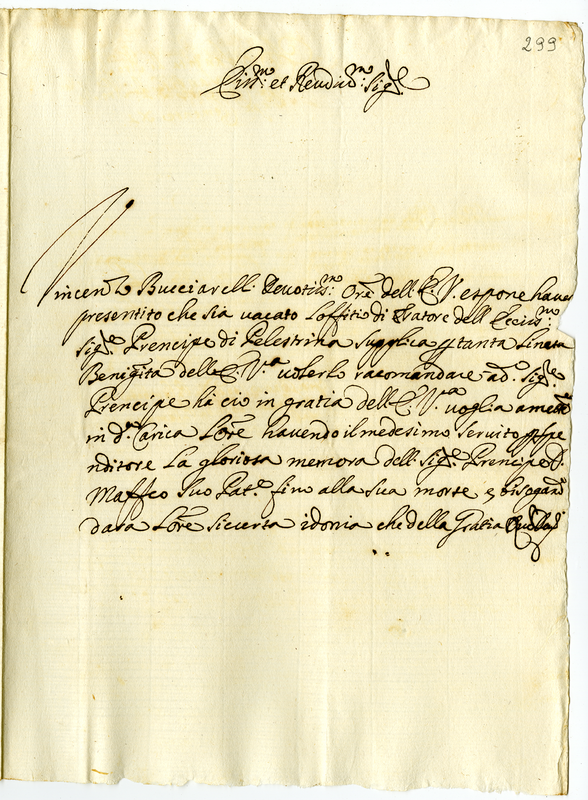 299
Em.mo et Reud.mo Sig.re
Vincenzo Bucciarelli Devotiss.mo Ore dell E.V. espone have
presentito che sia vacato l'offitio di Fatore dell Eccell.mo
Sig.re Prencipe di Pelestrina supplica p tanta inata
Benignità dell E.V.a volerlo racomandare ad.o Sig.re
Prencipe ha ciò in gratia dell E.V.a voglia
in d.a Carica L'ore havendo il medesimo servito p spe
nditore La gloriosa memora dell Sig.re Prencipe D.
Maffeo suo Pat.e fino alla sua morte e
dara L'ore idonia che della Gratia